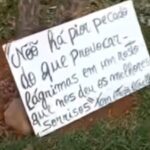 Não há pior pecado
do que provocar
lágrimas em um rosto
que nos deu os melhores
sorrisos